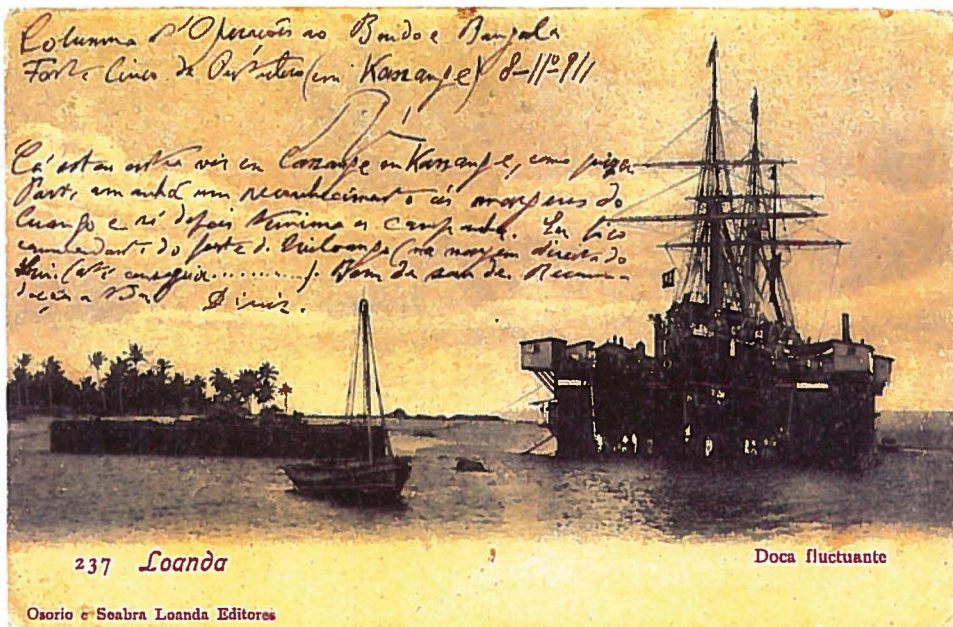 Columna d'Operações ao Bondo e Bangala
Forte Cinco de Outubro (em Kassange) 8-11º-911
Cá estou outra vez em Cassange ou Kassange, como
Parto amanhã um reconhecimento ás margens do
Cuango e só depois termina a campanha. Eu fico
commandante do forte de (na margem direita do
(até conseguir.........). Bom de saude. Recommen-
dações a Diniz.
237 Loanda
Doca fluctuante
Osorio e Seabra Loanda Editores